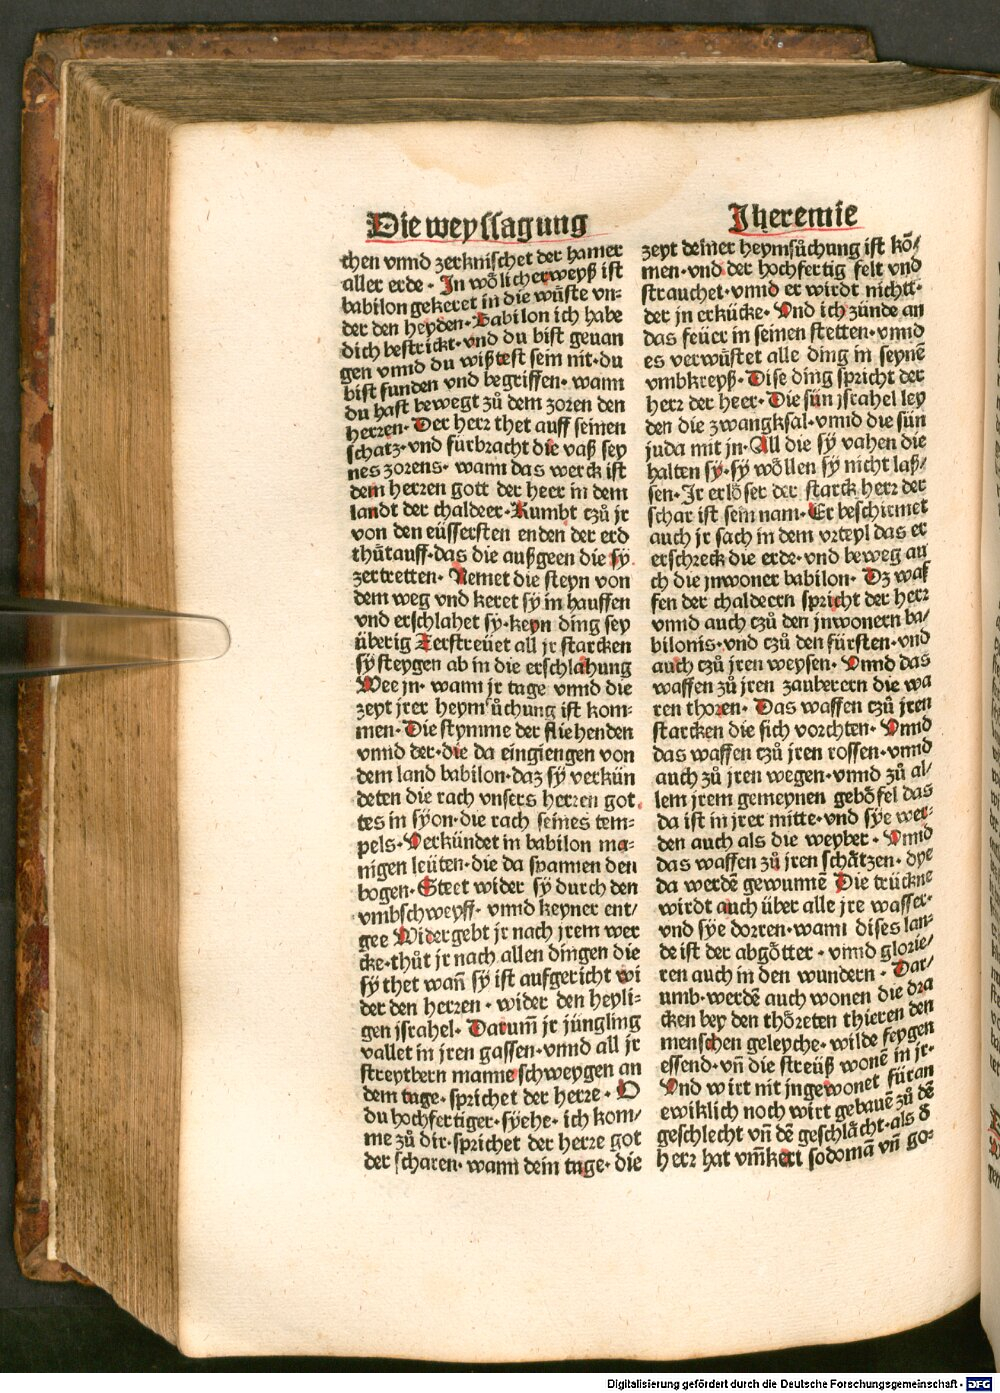 Die weyssagung
Jheremie
chen vnnd zerknischet der hamer
aller erde · In wölicherweyß ist
babilon gekeret in die wůste vn=
der den heyden · Babilon ich habe
dich bestrickt · vnd du bist geuan
gen vnnd du wißtest sein nit · du
bist funden vnd begriffen · wann
du hast bewegt zů dem zoren den
herren · Der herr thet auff seinen
schatz · vnd fürbracht die vaß sey
nes zorens · wann das werck ist
dem herren gott der heer in dem
landt der chaldeer · Kumbt czů jr
von den eüssersten enden der erd
thůtauff · das die außgeen die sÿ
zertretten · Nemet die steyn von
dem weg vnd keret sÿ in hauffen
vnd erschlahet sy · keyn ding sey
überig Zerstreüet all jr starcken
sÿ steygen ab in die erschlahung
Wee jn · wann jr tage vnnd die
zeyt jrer heymsůchung ist kom=
men · Die stymme der fliehenden
vnnd der · die da eingiengen von
dem land babilon · daz sÿ verkün
deten die rach vnsers herren got
tes in sÿon · die rach seines tem=
pels · Verkündet in babilon ma=
nigen leüten · die da spannen den
bogen · Steet wider sÿ durch den
vmbschweyff · vnnd keyner ent/
gee Widergebt jr nach jrem wer
cke · thůt jr nach allen dingen die
sÿ thet wañ sÿ ist aufgericht wi
der den herren · wider den heyli=
gen jsrahel · Darum̃ jr jüngling
vallet in jren gassen · vnnd all jr
streytbern manne schweygen an
dem tage · sprichet der herre · O
du hochfertiger · sÿehe · ich kom/
me zů dir · sprichet der herre got
der scharen · wann dein tage · die
zeyt deiner heymsůchung ist kö/
men · vnd der hochfertig felt vnd
strauchet · vnnd er wirdt nichtt ·
der jn erkücke · Vnd ich zünde an
das feüer in seinen stetten · vnnd
es verwůstet alle ding in seynẽ
vmbkreyß · Dise ding spricht der
herr der heer · Die sün jsrahel ley
den die zwangksal · vnnd die sün
juda mit jn · All die sÿ vahen die
halten sÿ · sÿ wöllen sÿ nicht laß/
sen · Ir erlöser der starck herr der
schar ist sein nam · Er beschirmet
auch jr sach in dem vrteyl das er
erschreck die erde · vnd beweg au
ch die jnwoner babilon · Dz waf
fen der chaldeern spricht der herr
vnnd auch czů den jnwonern ba/
bilonis · vnd czů den fürsten · vnd
auch czů jren weysen · Vnnd das
waffen zů jren zauberern die wa
ren thoren · Das waffen czů jren
starcken die sich vorchten · Vnnd
das waffen czů jren rossen · vnnd
auch zů jren wegen · vnnd zů al/
lem jrem gemeynen geböfel das
da ist in jrer mitte · vnd sÿe wer=
den auch als die weyber · Vnnd
das waffen zů jren schätzen · dye
da werdẽ gewunnẽ Die trückne
wirdt auch über alle jre wasser ·
vnd sÿe dorren · wann dises lan=
de ist der abgötter · vnnd glorie/
ren auch in den wundern · Dar/
umb · werdẽ auch wonen die dra
cken bey den thöreten thieren den
menschen geleyche · wilde feygen
essend · vñ die streüß wonẽ in jr ·
Vnd wirt nit jngewonet füran
ewiklich noch wirt gebauẽ zů dẽ
geschlecht vñ dẽ geschlächt · als d̃
herr hat vm̃kert sodomã vñ go=
Digitalisierung gefördert durch die Deutsche Forschungsgemeinschaft - DFG